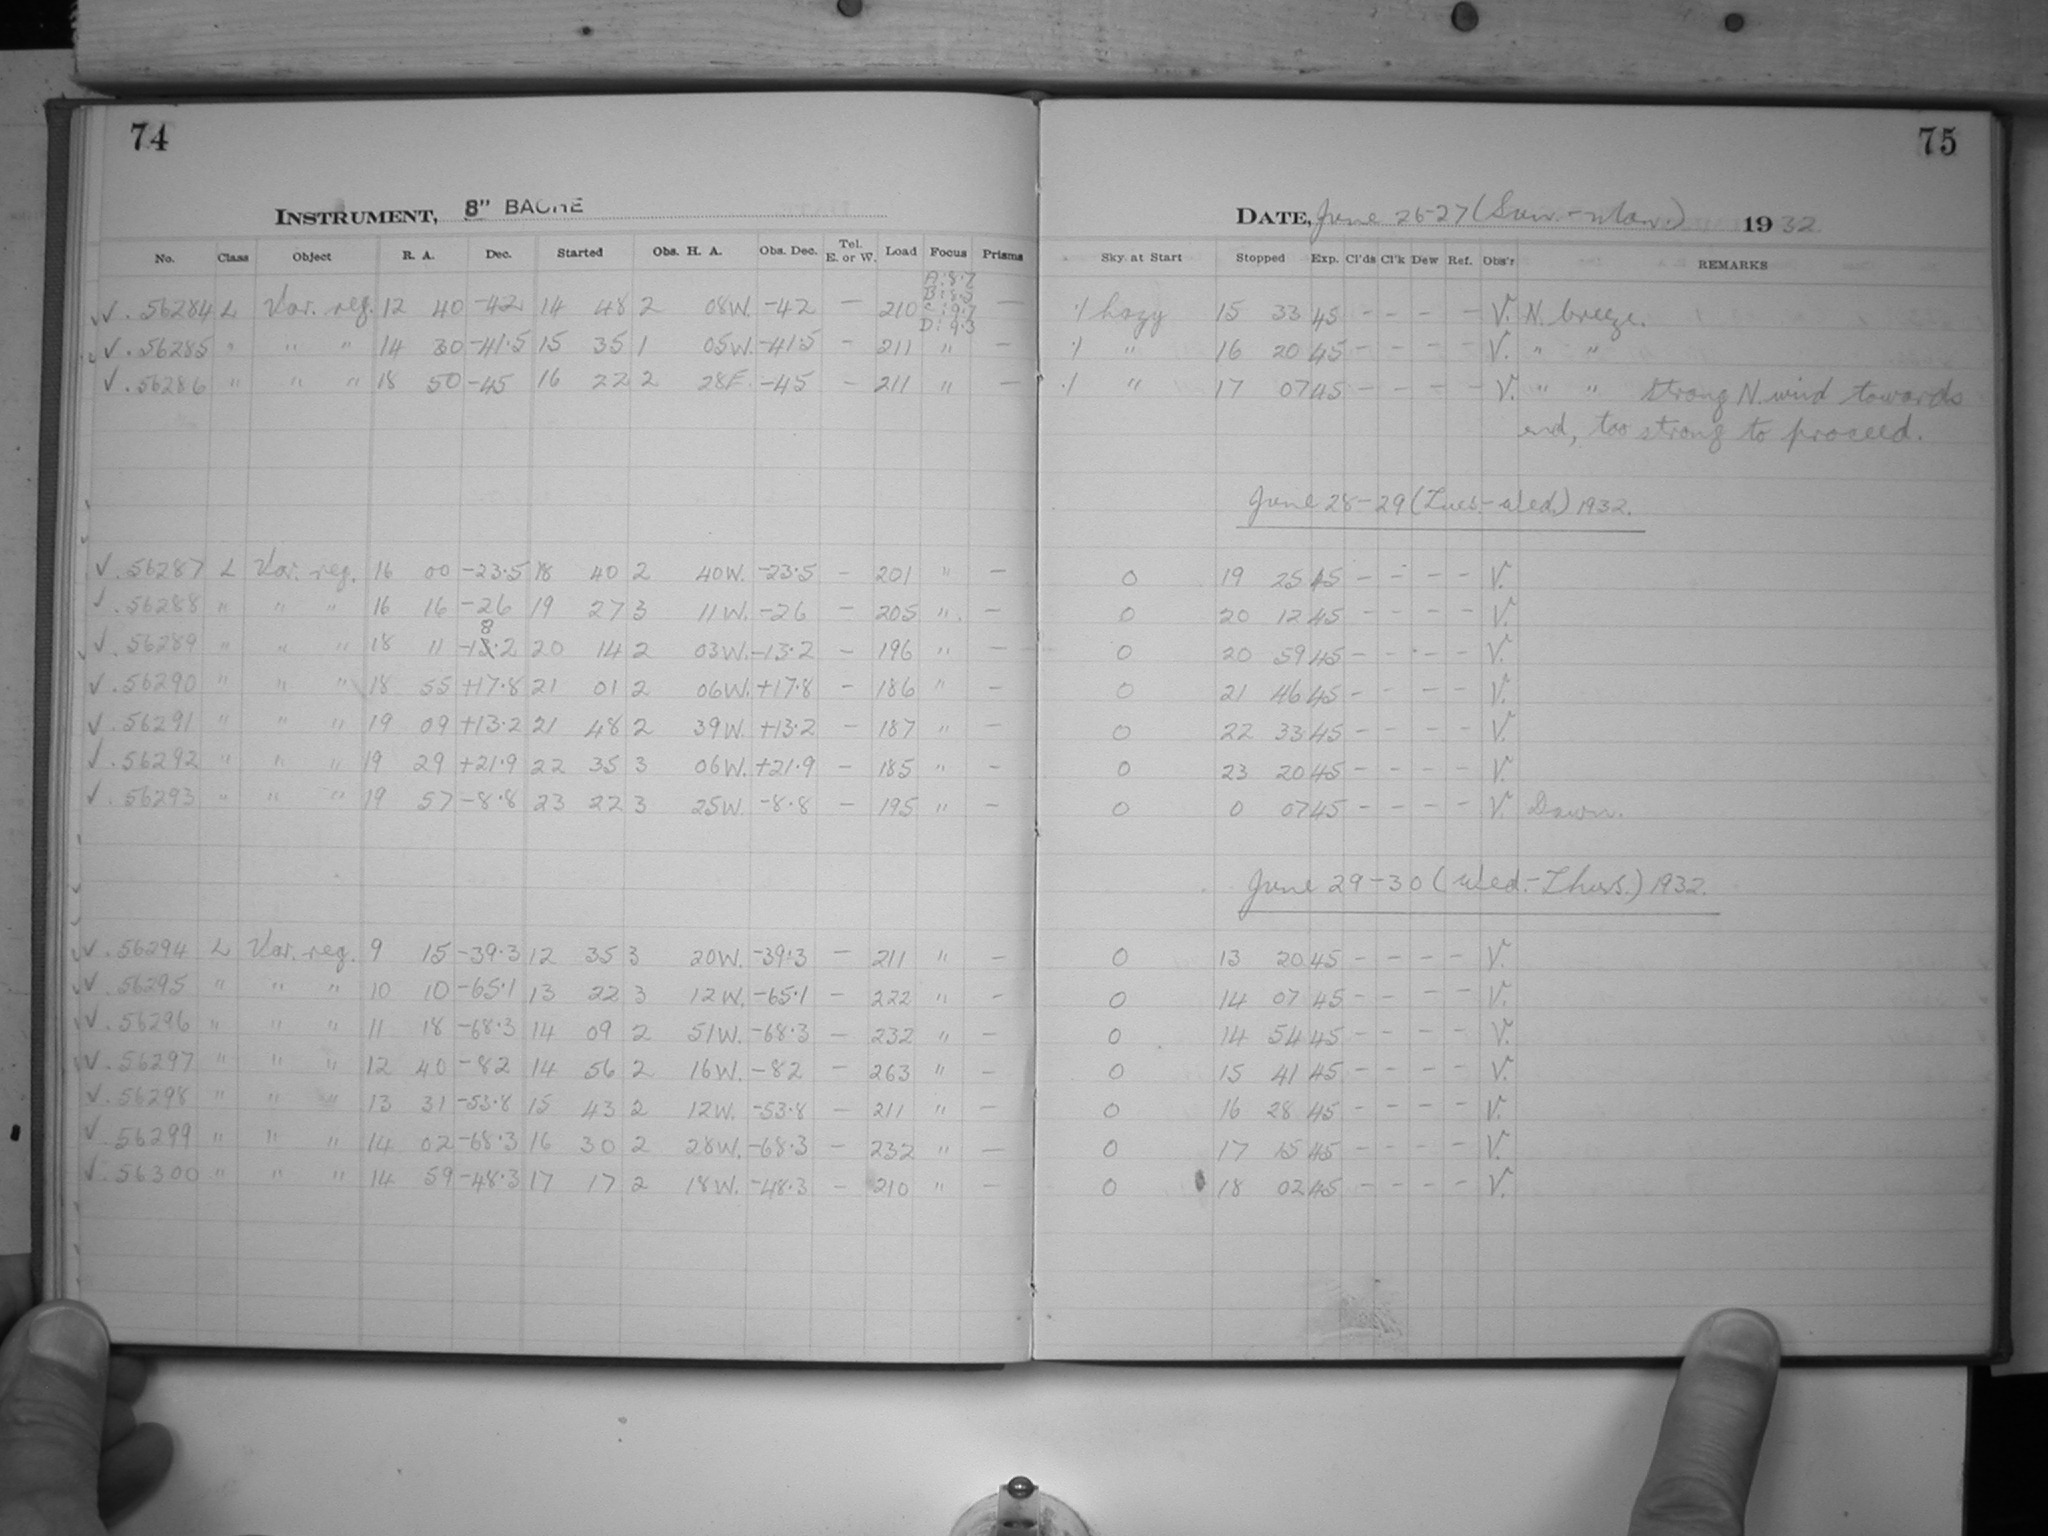 74
INSTRUMENT, 8" BACHE
No. Class Object R. A. Dec. Started Obs. H. A. Obs. Dec. Tel. E. or W. Load Focus Prisms
A: 8.7
B: 8.5
C: 9.7
D: 9.3
√. 56284 L Var. reg. 12 40 -42 14 48 2 08W. -42 — 210 —
√. 56285 " " " 14 30 -41.5 15 35 1 05W. -41.5 – 211 " –
√. 56286 " " " 18 50 -45 16 22 2 28E. -45 – 211 " —
√. 56287 L Var. reg. 16 00 -23.5 18 40 2 40W. -23.5 – 201 " –
√. 56288 " " " 16 16 -26 19 27 3 11W. -26 – 205 " –
8
√. 56289 " " " 18 11 -13.2 20 14 2 03W. -13.2 – 196 " –
√. 56290 " " " 18 55 +17.8 21 01 2 06W. +17.8 – 186 " –
√. 56291 " " " 19 09 +13.2 21 48 2 39W. +13.2 – 187 " –
√. 56292 " " " 19 29 +21.9 22 35 3 06W. +21.9 – 185 " –
√. 56293 " " " 19 57 -8.8 23 22 3 25W. -8.8 – 195 " –
√. 56294 L Var. reg. 9 15 -39.3 12 35 3 20W. -39.3 – 211 " –
√. 56295 " " " 10 10 -65.1 13 22 3 12W. -65.1 – 222 " –
√. 56296 " " " 11 18 -68.3 14 09 2 51W. -68.3 – 232 " –
√. 56297 " " " 12 40 -82 14 56 2 16W. -82 – 263 " –
√. 56298 " " " 13 31 -53.8 15 43 2 12W. -53.8 – 211 " –
√. 56299 " " " 14 02 -68.3 16 30 2 28W. -68.3 – 232 " –
√. 56300 " " " 14 59 -48.3 17 17 2 18W. -48.3 – 210 " –
75
DATE, June 26-27 (Sun.-Mon.) 1932
Sky at Start Stopped Exp. Cl'ds Cl'k Dew Ref. Obs'r REMARKS
·/ hazy 15 33 45 – – – – V. N. breeze.
·/ " 16 20 45 – – – – V. " "
·/ " 17 07 45 – – – – V. " " Strong N. wind towards
end, too strong to proceed.
June 28-29 (Tues.-Wed.) 1932.
0 19 25 45 – – – – V.
0 20 12 45 – – – – V.
0 20 59 45 – – – – V.
0 21 46 45 – – – – V.
0 22 33 45 – – – – V.
0 23 20 45 – – – – V.
0 0 07 45 – – – – V. Dawn.
June 29-30 (Wed.-Thurs.) 1932.
0 13 20 45 – – – – V.
0 14 07 45 – – – – V.
0 14 54 45 – – – – V.
0 15 41 45 – – – – V.
0 16 28 45 – – – – V.
0 17 15 45 – – – – V.
0 18 02 45 – – – – V.